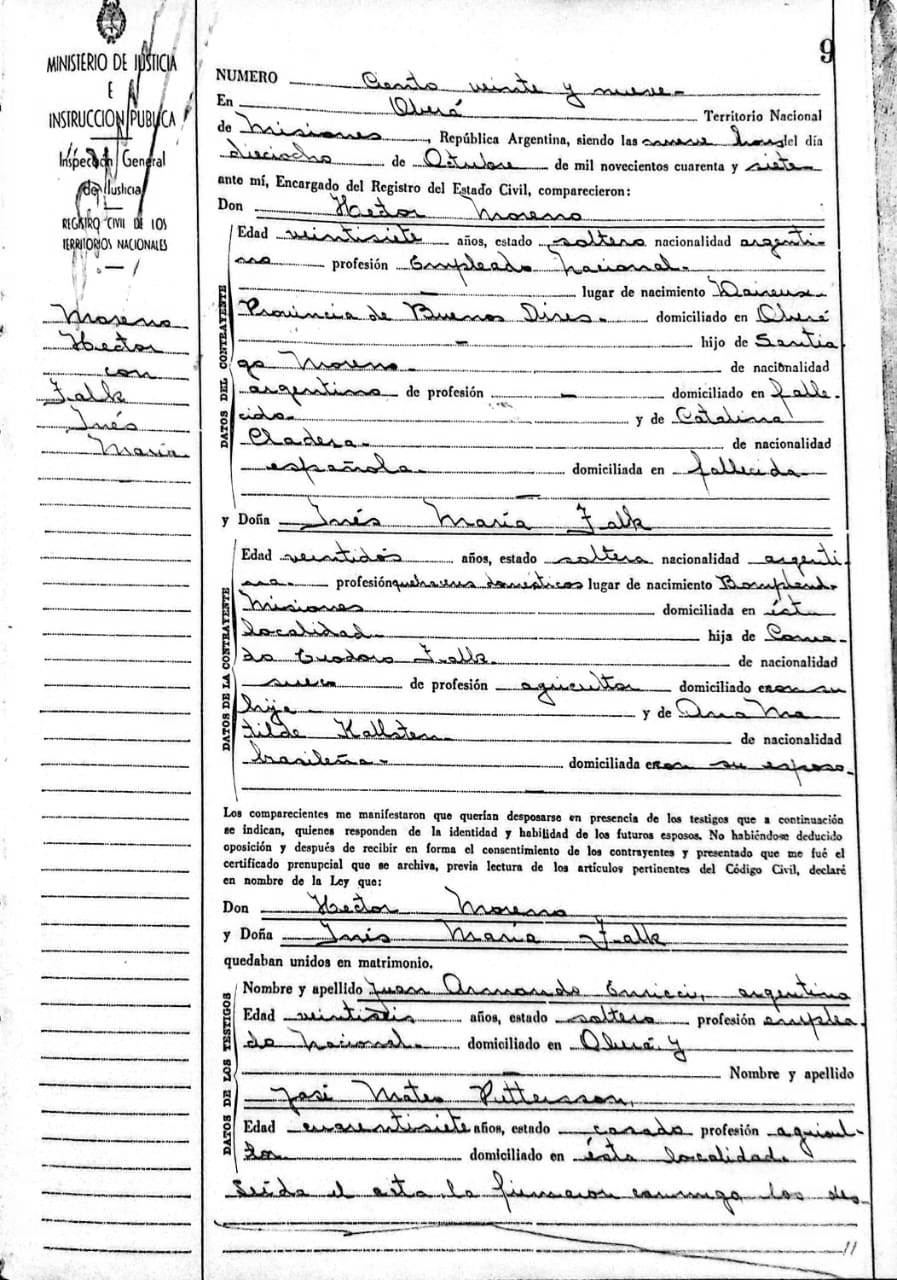 MINISTERIO DE JUSTICIA
E
INSTRUCCION PUBLICA
Inspección General
de Justicia
REGISTRO CIVIL DE LOS
TERRITORIOS NACIONALES
Moreno
Hector
con
Falk
Inés
María
9
NUMERO Ciento veinte y nueve
En Oberá Territorio Nacional
de Misiones, República Argentina, siendo las nueve horas del día
dieciocho de Octubre de mil novecientos cuarenta y siete
ante mí, Encargado del Registro del Estado Civil, comparecieron:
Don Hector Moreno
DATOS DEL CONTRAYENTE
Edad veintisiete años, estado soltero nacionalidad argenti-
no profesión Empleado Nacional.
lugar de nacimiento Daireux
Provincia de Buenos Aires. domiciliado en Oberá
hijo de Santia
go Moreno. de nacionalidad
argentino de profesión domiciliado en falle-
cido. y de Catalina
Cladera. de nacionalidad
española. domiciliada en fallecida
y Doña Inés María Falk
DATOS DE LA CONTRAYENTE
Edad veintidós años, estado soltera nacionalidad argenti-
na. profesión quehaceres domésticos lugar de nacimiento Bompland
Misiones domiciliada en ésta
localidad. hija de Conra-
do Teodoro Falk. de nacionalidad
sueco de profesión agricultor domiciliado con su
hija. y de Ana Ma
tilde Kallsten. de nacionalidad
brasileña. domiciliada con su esposo.
Los comparecientes me manifestaron que querían desposarse en presencia de los testigos que a continuación
se indican, quienes responden de la identidad y habilidad de los futuros esposos. No habiéndose deducido
oposición y después de recibir en forma el consentimiento de los contrayentes y presentado que me fué el
certificado prenupcial que se archiva, previa lectura de los artículos pertinentes del Código Civil, declaré
en nombre de la Ley que:
Don Hector Moreno
y Doña Inés María Falk
quedaban unidos en matrimonio.
DATOS DE LOS TESTIGOS
Nombre y apellido Juan Armando Enricci, argentino
Edad veintiséis años, estado soltero profesión emplea-
do Nacional. domiciliado en Oberá y
Nombre y apellido
José Mateo Pettersson,
Edad cuarentisiete años, estado casado profesión agricul-
tor domiciliado en ésta localidad.
Leída el acta la firmaron conmigo los des-
11